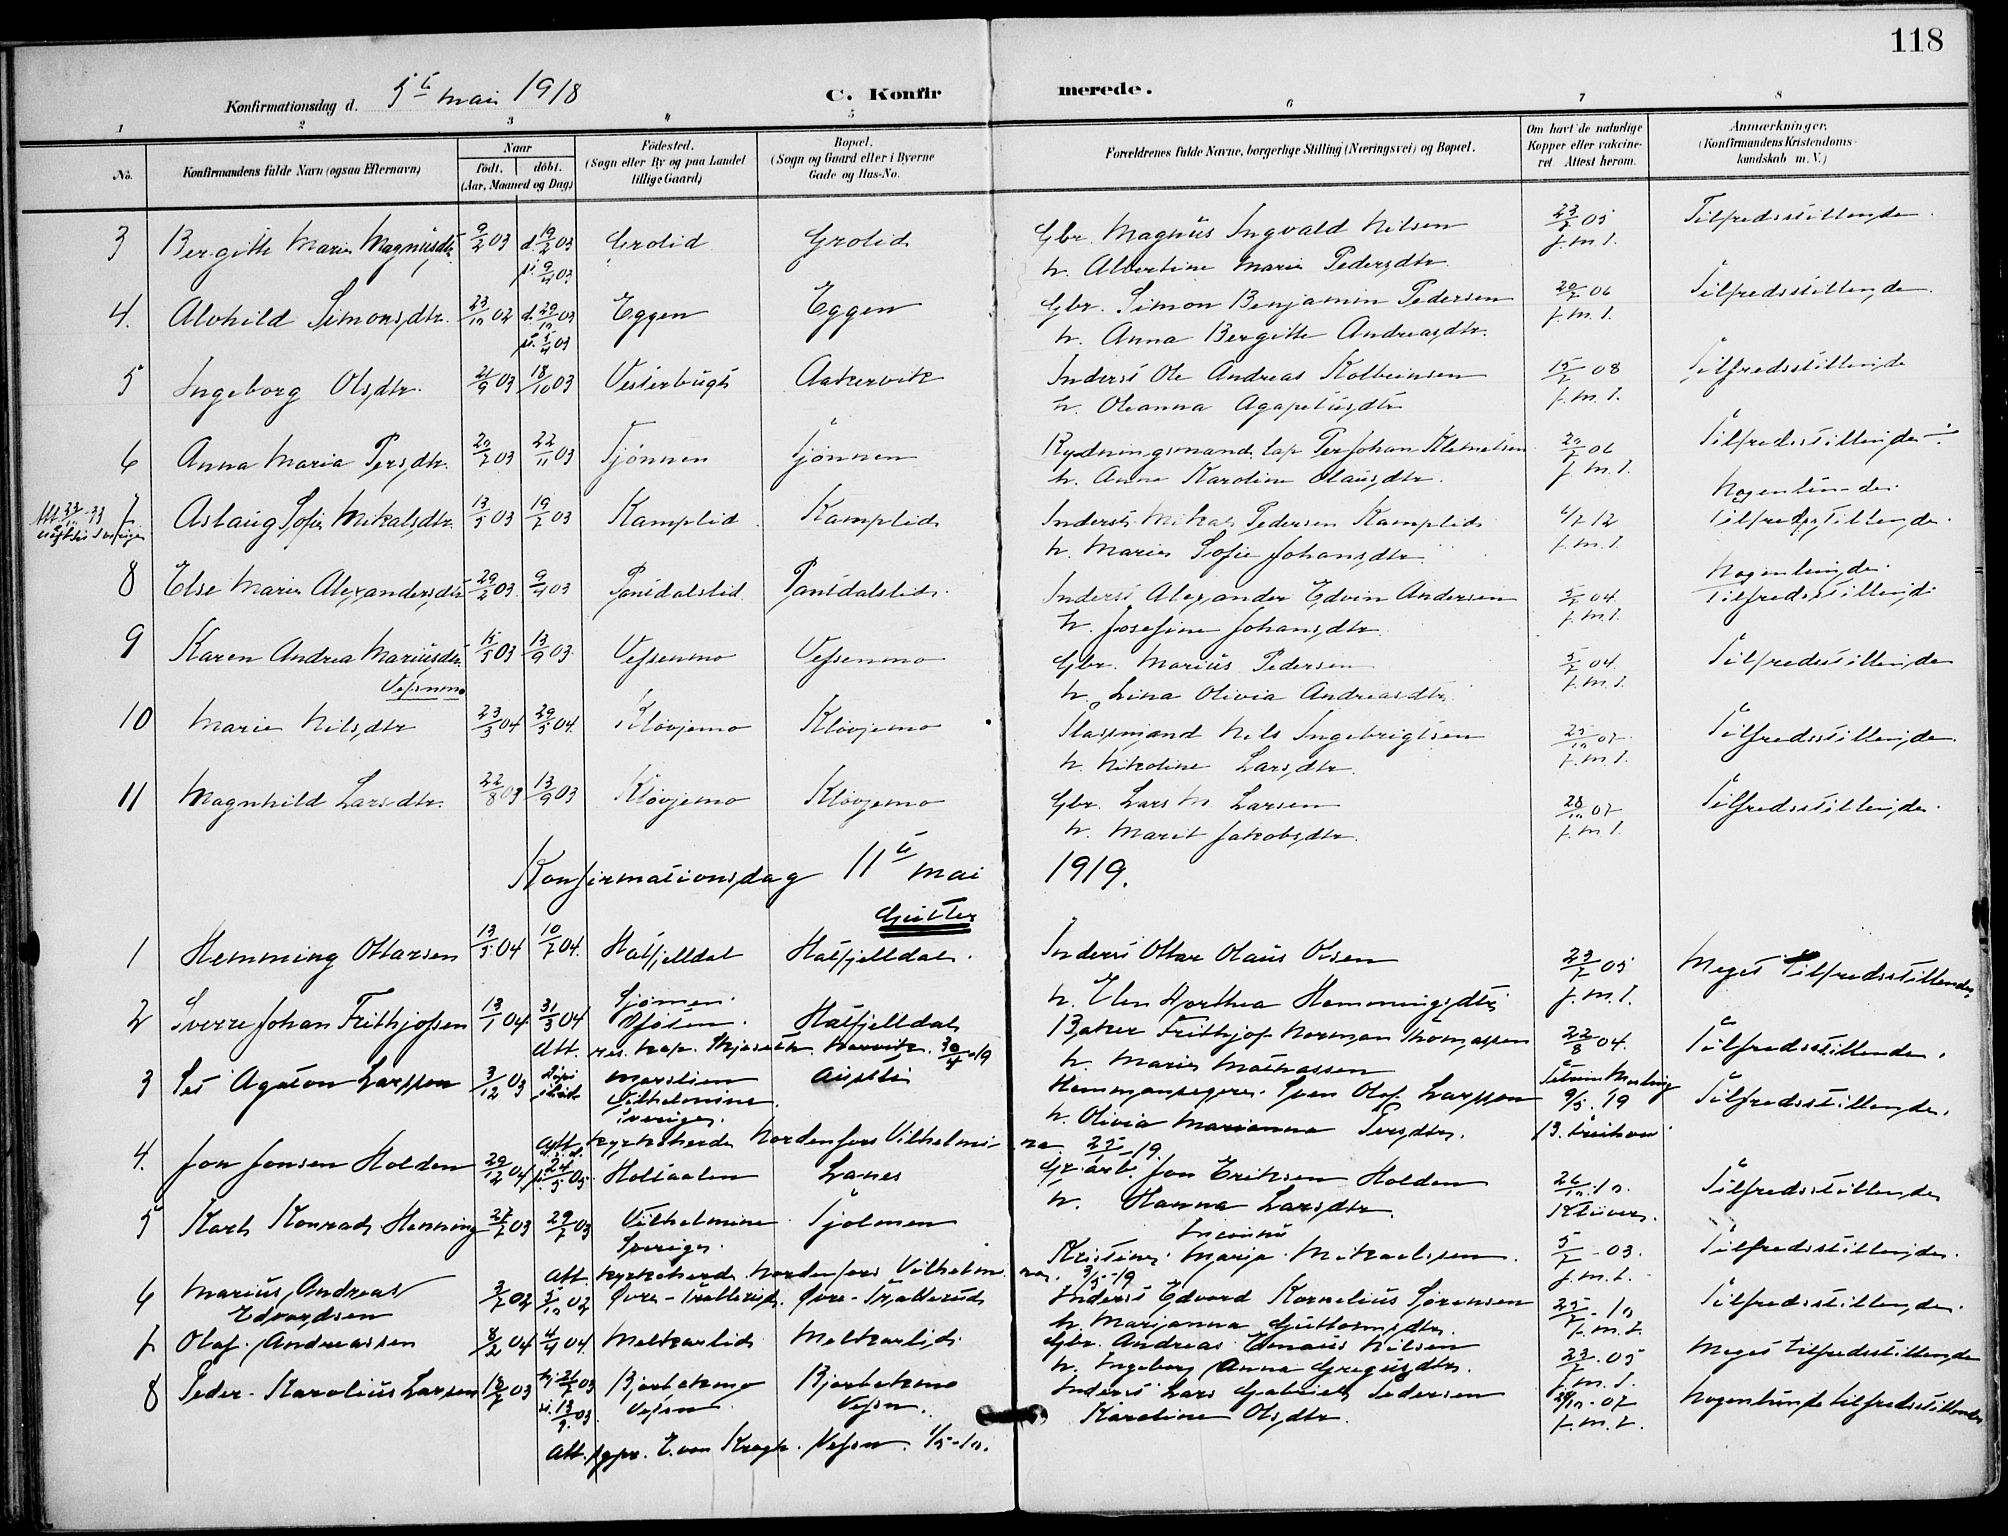 118
Konfirmationsdag d. 5te mai 1918 C. Konfirmerede.
1 2 3 4 5 6 7 8
No. Konfirmandens fulde Navn (ogsaa Efternavn) Naar Født. døbt. (Aar, Maaned og Dag) Fødested. (Sogn eller By og paa Landet tillige Gaard) Bopæl. (Sogn og Gaard eller i Byerne Gade og Hus-No. Forældrenes fulde Navne, borgerlige Stilling (Næringsvei) og Bopæl. Om havt de naturlige Kopper eller vaccineret Attest herom. Anmærkninger. (Konfirmandens Kristendomskundskab m. V.)
3 Bergitte Marie Magnusdtr. 9/2 03 d. 19/2 03 Grotid Grotid Gbr. Magnus Ingvald Nilsen 23/7 05 Tilfredsstillende.
h. Albertine Marie Pedersdtr. f.m.l.
4. Alvhild Simonsdtr. 23/10 02 d. 29/10 02 Eggen Eggen Gbr. Simon Benjamin Pedersen 20/7 06 Tilfredsstillende.
h. Anna Bergitte Andreasdtr. f.m.l.
5 Ingeborg Olsdtr. 21/9 03 18/10 03 Vesterbugt Aakervik Inderst Ole Andreas Kolbeinsen 15/7 08 Tilfredsstillende
h. Oleanna Agapetusdtr f.m.l.
6 Anna Maria Persdtr. 20/7 03 22/11 03 Tjønnen Tjønnen Rydningsmand, lap Per Johan Klemetsen 20/7 06 Tilfredsstillende
h. Anna Karoline Olausdtr. f.m.l.
7 Aslaug Sofie Mikalsdtr. 13/5 03 19/7 03 Kamplid Kamplid Inderst Mikal Pedersen Kamplid 6/7 12 Nogenlunde tilfredsstillende.
h. Marie Sofie Johansdtr. f.m.l.
8 Else Marie Alexandersdtr 29/2 03 9/4 03 Pantdalslid Pantdalslid. Inderst Alexander Edvin Andersen 5/7 04 Nogenlunde tilfredsstillende
h. Josefine Johansdtr. f.m.l.
9 Karen Andrea Mariusdtr. 15/5 03 13/9 03 Vefsenmo Vefsenmo Gbr. Marius Pedersen 5/7 04. Tilfredsstillende
Vefsnmo h. Lina Olivia Andreasdtr. f.m.l.
10 Marie Nilsdtr 23/3 04 29/5 04. Kløvjemo Kløvjemo Plassmand Nils Ingebrigtsen 25/10 07 Tilfredsstillende.
h. Nikoline Larsdtr. f.m.l.
11 Magnhild Larsdtr. 22/8 03 13/9 03 Kløvjemo Kløvjemo Gbr. Lars M Larsen 28/10 07 Tilfredsstillende.
h. Marit Jakobsdtr. f.m.l.
Konfirmationsdag 11te mai 1919.
Gutter
1 Hemming Ottarsen 13/5 04 10/7 04. Hatfjelldal Hatfjelldal. Inderst Ottar Olaus Olsen 23/7 05 Meget tilfredsstillende.
h. Elen Dorthea Hemmingsdtr f.m.l.
2 Sverre Johan Frithjofsen 13/1 04 31/3 04 Hatfjelldal Baker Frithjof Norman Thomassen 22/8 04. Tilfredsstillende.
Att. res. kap. Narvik. 30/4 -19 h. Marie Mathiassen
3 Agaton Larsson 3/12 03 Vilhelmina Sverige. Hemmansegere Sven Olof Larsson 9/5. 19 Tilfredsstillende.
h. Olivia Marianna Persdtr.
Att. kyrkoherde Nordenfors Vilhelmina 25/-19.
4. Jon Jonsen Holden 29/12 04 Holtaalen Lanes Gr. arb. Jon Eriksen Holden 26/10. 10. Tilfredsstillende
h. Hanna Larsdtr. Klüver.
5 Karl Konrad Henning 27/7 03 29/7 03 Vilhelmina Sverige. Tjolmen Kristina Maria Mikaelssen. 5/7 - 03. Tilfredsstillende.
Att. kyrkoherde Nordenfors Vilhelmina. 3/5-19 f.m.l.
6 Marius Andreas Edvardsen 3/7 02 5/10 02 Øvre-Trallerud. Øvre-Trallerud Inderst Edvard Kornelius Sørensen 25/7 - 10 Tilfredsstillende.
h. Marjanna Guttormsdtr. f.m.l.
7 Olaf Andreassen 8/2 04 4/4 04. Melkarlid Melkarlid. Gbr. Andreas Emaus Nilsen 23/7. 05 Meget tilfredsstillende
h. Ingeborg Anna Gregusdtr. f.m.l.
8 Peder Karolius Larsen 18/7 03 hj. 21/7 03 Bjorbekmo Vefsn Bjorbekmo Vefsn. Inderst Lars Gabriel Pedersen 29/10-07 Nogenlunde tilfredsstillende
Karoline Olsdtr. f.m.l.
Att. sgpr. E. von Krogh. Vefsn. 1/5-19.